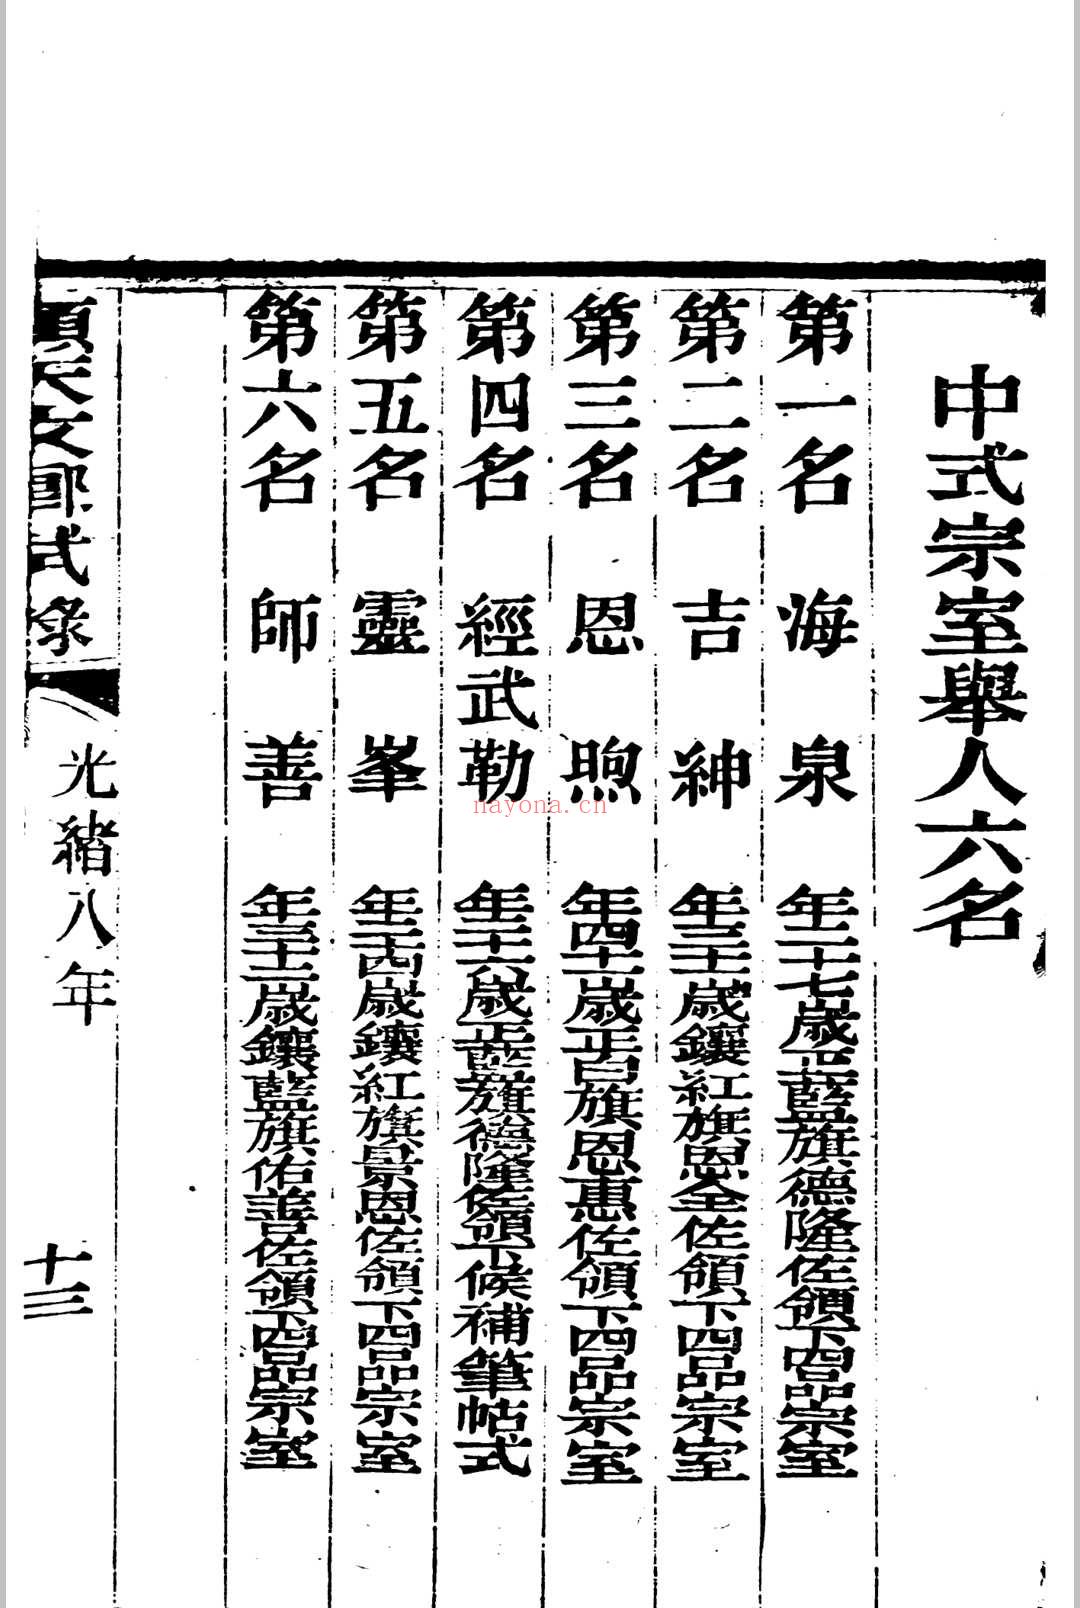 中式宗室舉人六名
第一名 海泉 年二十七歲正藍旗德隆佐領下四品宗室
第二名 吉紳 年三十二歲鑲紅旗恩全佐領下四品宗室
第三名 恩煦 年四十一歲正白旗恩惠佐領下四品宗室
第四名 經武勒 年二十六歲正藍旗德隆佐領下候補筆帖式
第五名 靈峯 年三十四歲鑲紅旗景恩佐領下四品宗室
第六名 師善 年三十二歲鑲藍旗佑善佐領下四品宗室
順天文鄉試錄 光緒八年 十三
nayona.cn